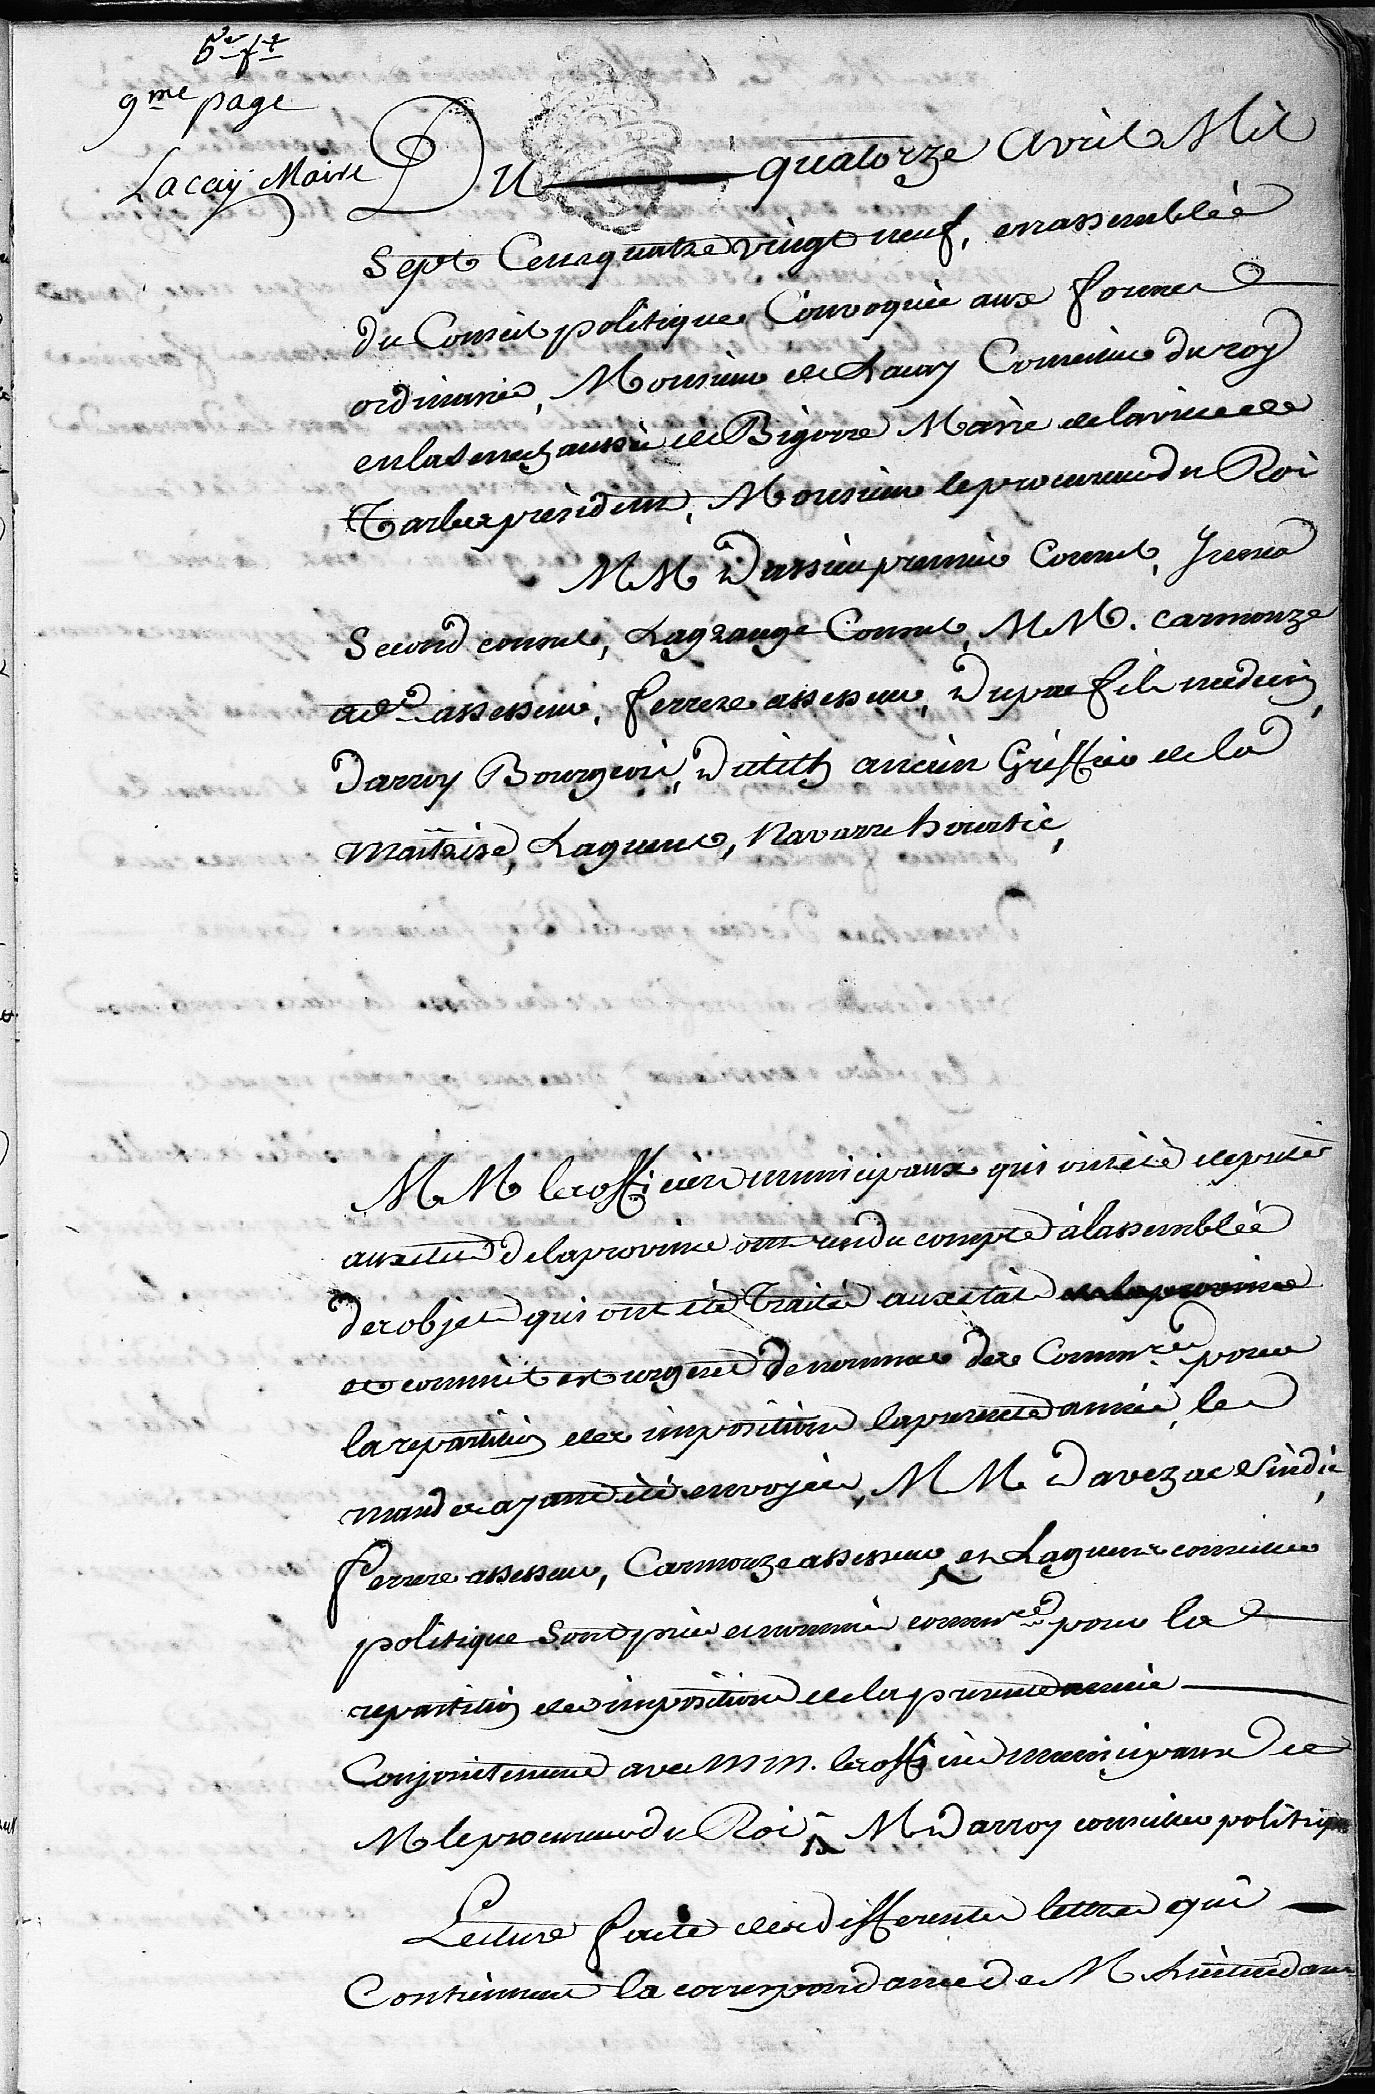 5e ft
9me page
Lacay Maire
Du quatorze Avril Mil
Sept Cens quatre vingt neuf, en assemblée
du Conseil politique Convoquée aux formes
ordinaires, Monsieur de Lacay Conseiller du roy
en la senechaussée de Bigorre Maire de la ville de
Tarbes president, Monsieur le procureur du Roi
MM Dassieu premier Consul,
Second consul, Lagrange Consul, MM. Carmouze
adt. assesseur, ferrere assesseur, Dupac fils medecin,
Darroy Bourgeois, Dutilh ancien Greffier de la
Maitrise, Lagueue, Navarre hourtic,
MM les officiers municipaux qui ont été deputés
aux etats de la province ont rendu compte à l'assemblée
des objets qui ont été Traités aux etats de la province
et comme il est urgent de nommer des Commres pour
la repartition des impositions la presente année, les
mandes ayant été envoyées, MM Davezac Sindic,
ferrere assesseur, Carmouze assesseur et Lagueue conseiller
politique sont priés et nommés commres pour la
repartition des impositions de la presente année
Conjointement avec MM. les officiers municipaux et
M le procureur du Roi, M Darroy conseiller politique
Lecture faite des differentes lettres qui
Contiennent la correspondance de M. L'intendant